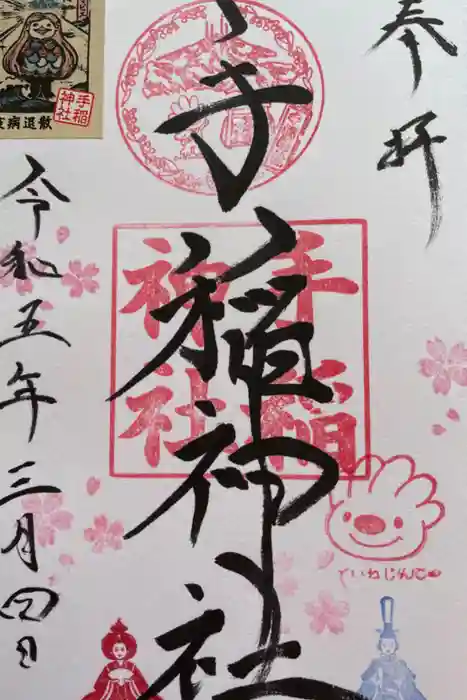 奉拝
手稲神社
手稲
神社
ていねじんじゃ
令和五年三月四日
手稲
神社
疫病退散